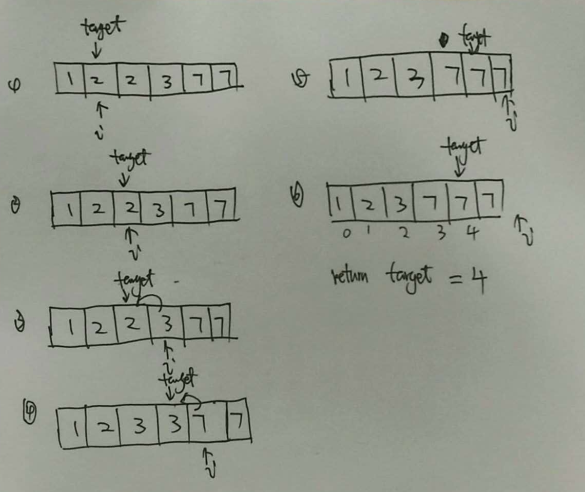 target
(1) 1 2 2 3 7 7
i
target
(2) 1 2 2 3 7 7
i
target
(3) 1 2 2 3 7 7
i
target
(4) 1 2 3 3 7 7
i
target
(5) 1 2 3 7 7 7
i
target
(6) 1 2 3 7 7 7
0 1 2 3 4
i
return target = 4